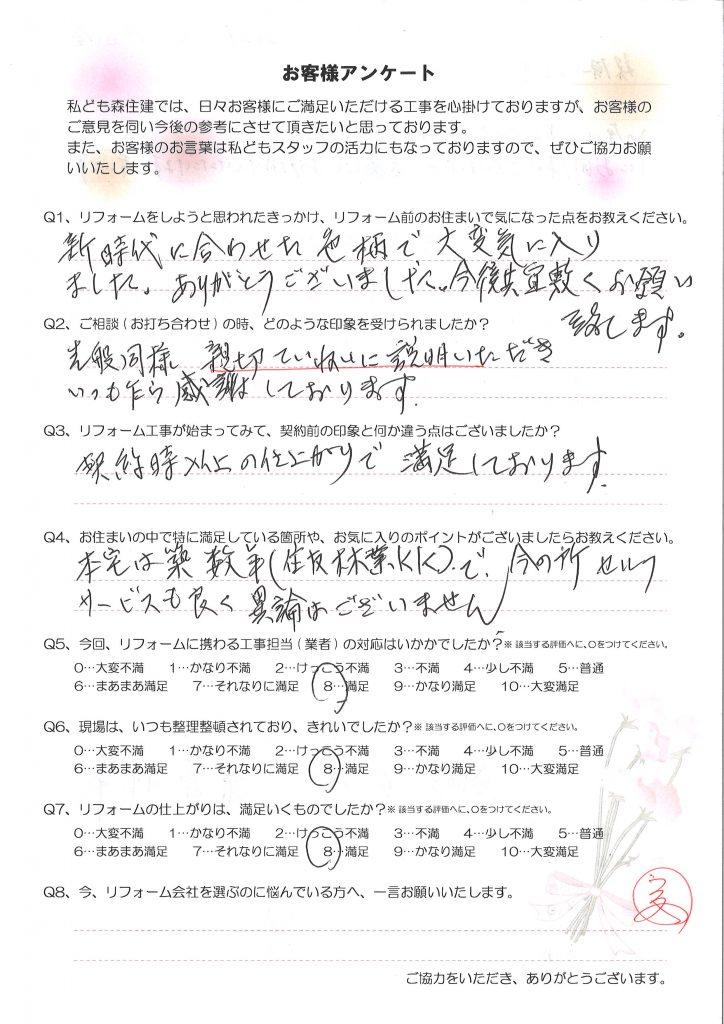 お客様アンケート
私ども森住建では、日々お客様にご満足いただける工事を心掛けておりますが、お客様の
ご意見を伺い今後の参考にさせて頂きたいと思っております。
また、お客様のお言葉は私どもスタッフの活力にもなっておりますので、ぜひご協力お願
いいたします。
Q1、リフォームをしようと思われたきっかけ、リフォーム前のお住まいで気になった点をお教えください。
新時代に合わせた色柄で大変気に入り
ました。ありがとうございました。今後共宜敷くお願い
致します。
Q2、ご相談(お打ち合わせ)の時、どのような印象を受けられましたか?
先般同様 親切ていねいに説明いただき
いつも乍ら感謝しております。
Q3、リフォーム工事が始まってみて、契約前の印象と何か違う点はございましたか?
契約時以上の仕上がりで満足しております。
Q4、お住まいの中で特に満足している箇所や、お気に入りのポイントがございましたらお教えください。
本宅は築数年(住友林業KK)で、今の所セルフ
サービスも良く異論はございません
Q5、今回、リフォームに携わる工事担当(業者)の対応はいかかでしたか?※該当する評価へに、○をつけてください。
0…大変不満 1…かなり不満 2…けっこう不満 3…不満 4…少し不満 5…普通
6…まあまあ満足 7…それなりに満足 8…満足 9…かなり満足 10…大変満足
Q6、現場は、いつも整理整頓されており、きれいでしたか?※該当する評価へに、○をつけてください。
0…大変不満 1…かなり不満 2…けっこう不満 3…不満 4…少し不満 5…普通
6…まあまあ満足 7…それなりに満足 8…満足 9…かなり満足 10…大変満足
Q7、リフォームの仕上がりは、満足いくものでしたか?※該当する評価へに、○をつけてください。
0…大変不満 1…かなり不満 2…けっこう不満 3…不満 4…少し不満 5…普通
6…まあまあ満足 7…それなりに満足 8…満足 9…かなり満足 10…大変満足
Q8、今、リフォーム会社を選ぶのに悩んでいる方へ、一言お願いいたします。
ご協力をいただき、ありがとうございます。